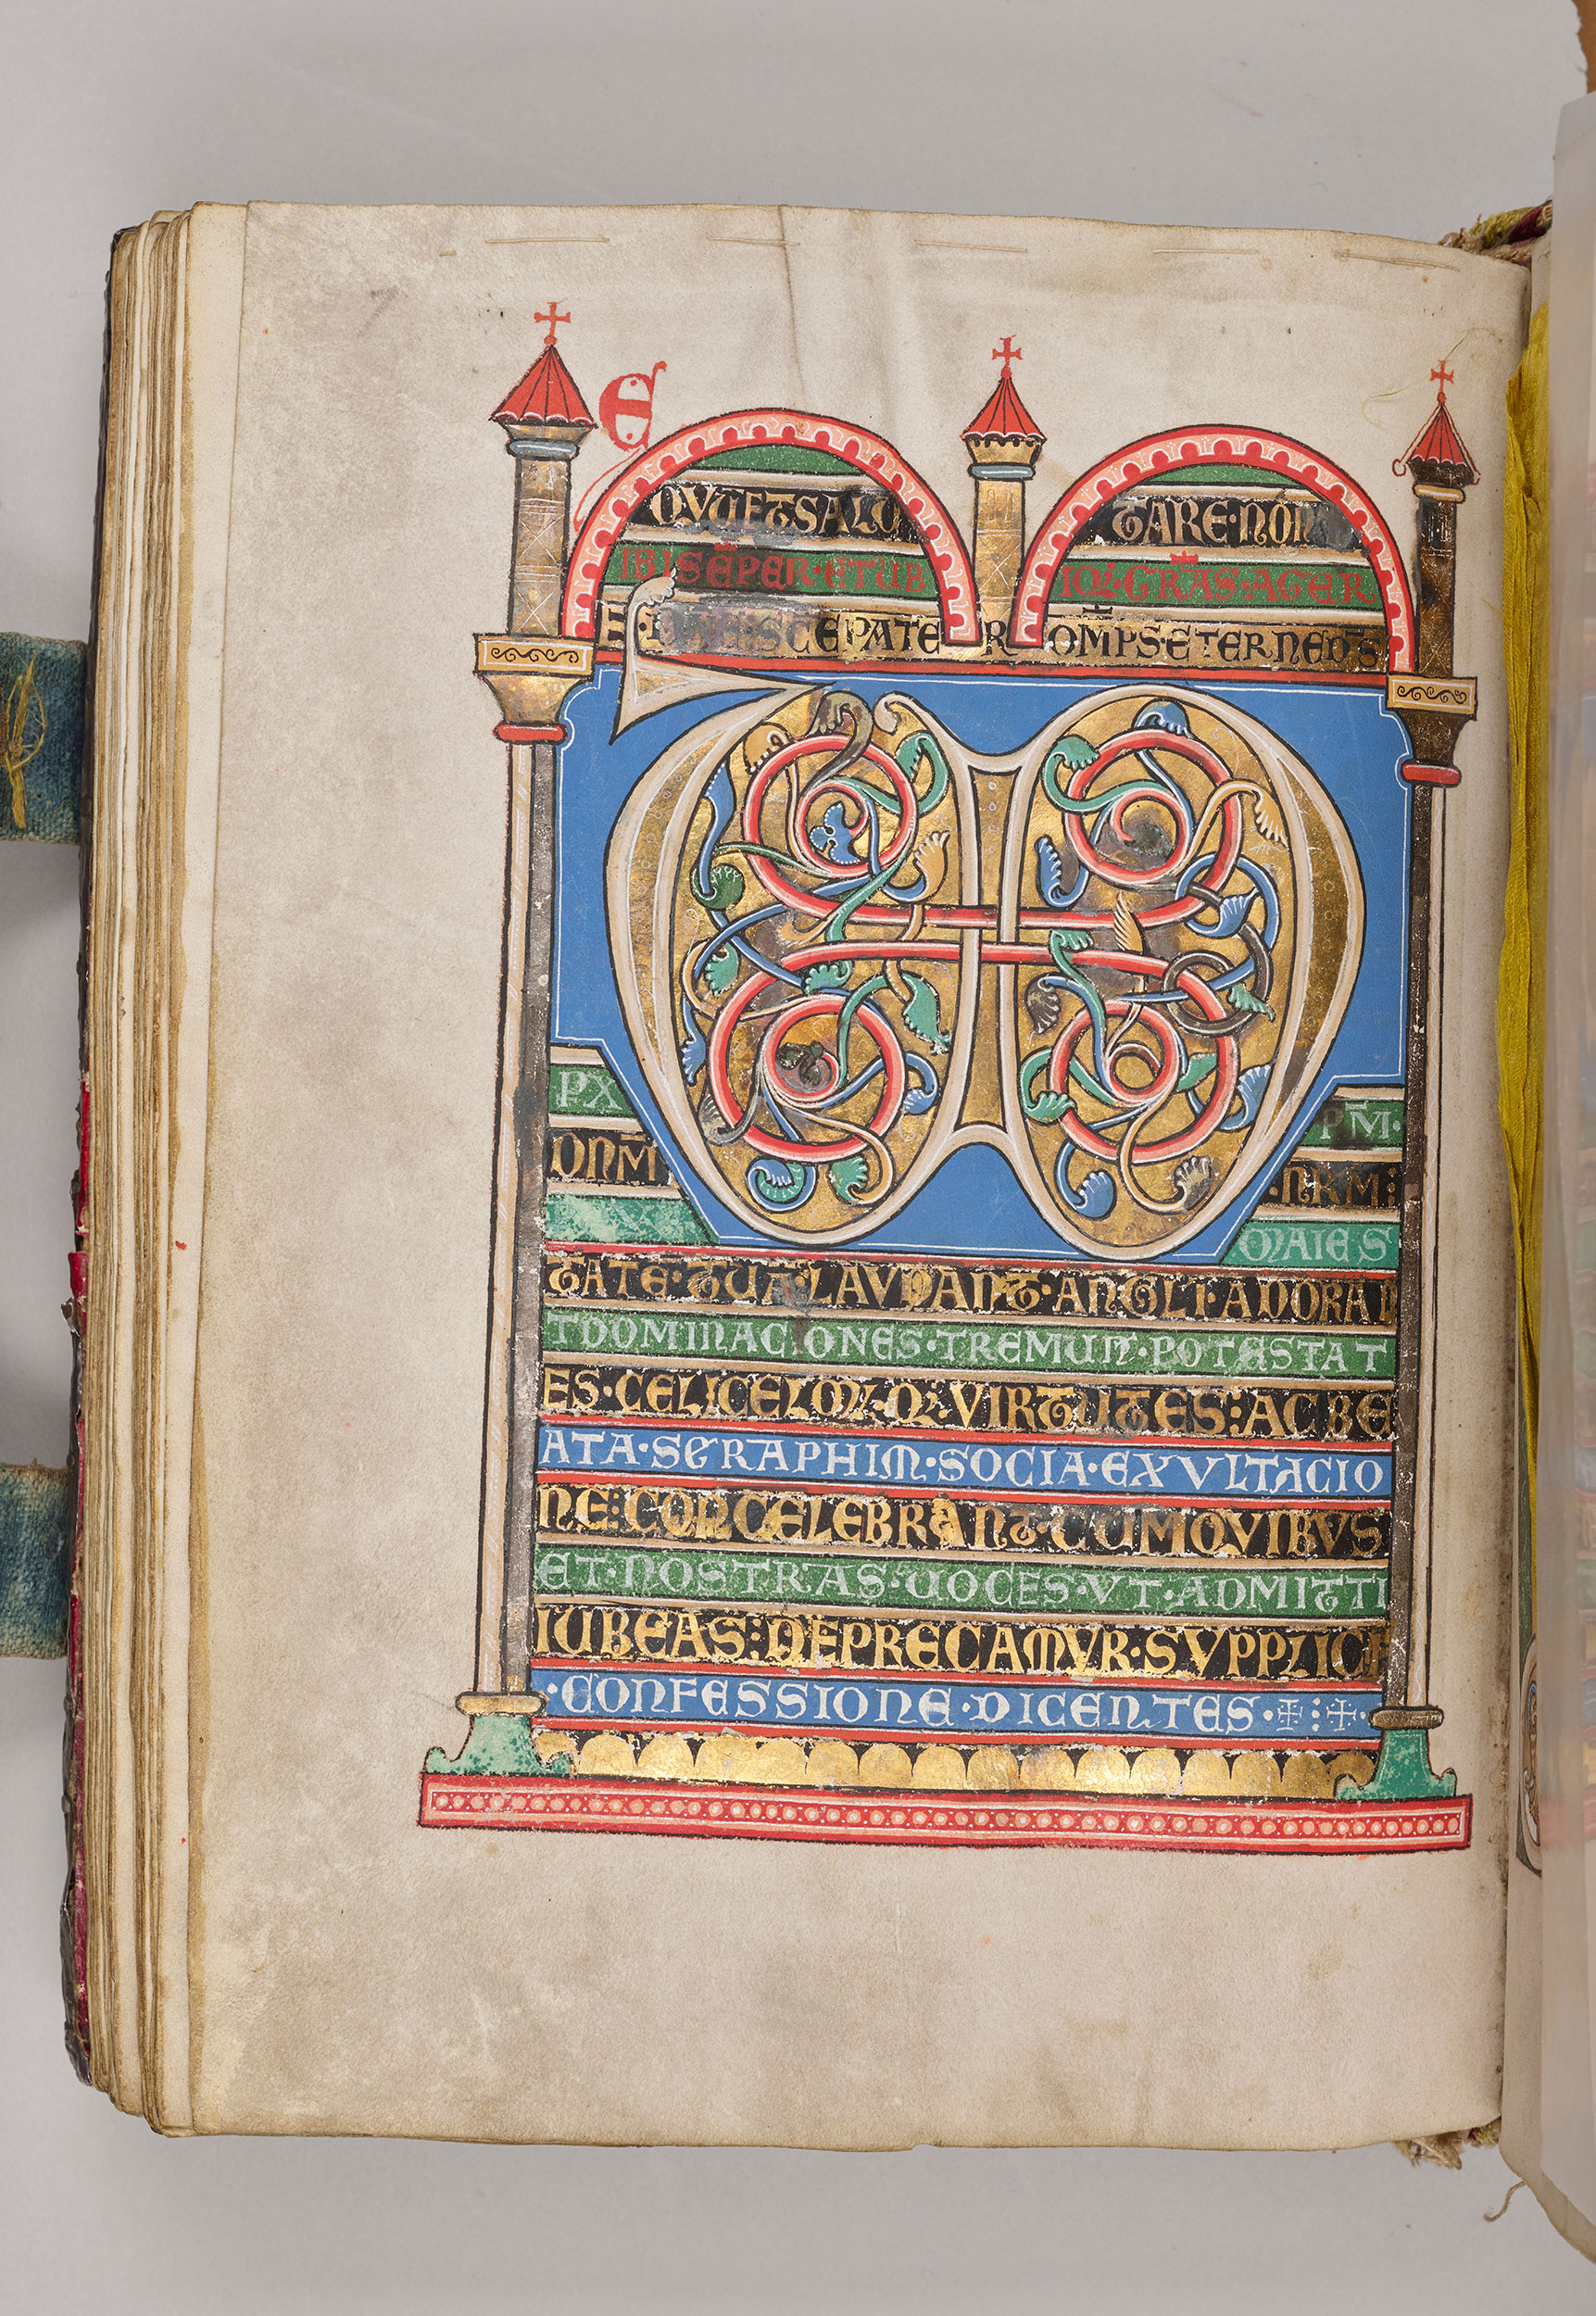 E
QVUETSALU TARE·NO
IBISEPER·ETUB IQ·GRAS·AGER
E·DNE·SCEPATE R OMPS·ETERNEDS
UD
PX PM·
DNM ·NRM:
MAIES
TATE·TUA·LAVDANT·ANGLI·ADORAN
TDOMINACIONES·TREMUNT·POTESTAT
ES·CELICELOR·Q·VIRTUTES:ACBE
ATA·SERAPHIM·SOCIA·EXVLTACIO
NE:CONCELEBRANT·CUMQVIBVS
ET·NOSTRAS·UOCES·VT·ADMITTI
IUBEAS:DEPRECAMVR·SVPPLICE
·CONFESSIONE·DICENTES·